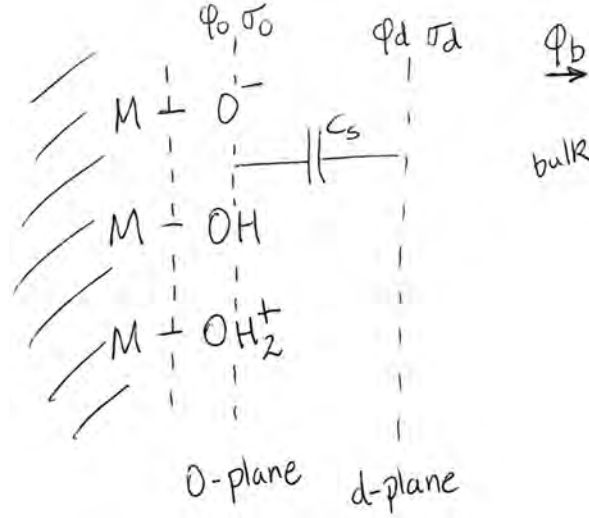 φ₀ σ₀ φd σd φb
M - O⁻
Cs
bulk
M - OH
M - OH₂⁺
O-plane d-plane